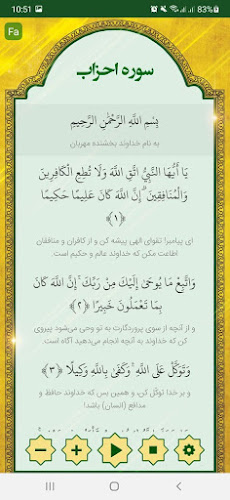 10:51
83%
Fa
سوره احزاب
بِسْمِ اللَّهِ الرَّحْمَٰنِ الرَّحِيمِ
به نام خداوند بخشنده مهربان
يَا أَيُّهَا النَّبِيُّ اتَّقِ اللَّهَ وَلَا تُطِعِ الْكَافِرِينَ
وَالْمُنَافِقِينَ ۗ إِنَّ اللَّهَ كَانَ عَلِيمًا حَكِيمًا
﴿١﴾
ای پیامبر! تقوای الهی پیشه کن و از کافران و منافقان
اطاعت مکن که خداوند عالم و حکیم است.
وَاتَّبِعْ مَا يُوحَىٰ إِلَيْكَ مِنْ رَبِّكَ ۚ إِنَّ اللَّهَ كَانَ
بِمَا تَعْمَلُونَ خَبِيرًا ﴿٢﴾
و از آنچه از سوی پروردگارت به تو وحی می‌شود پیروی
کن که خداوند به آنچه انجام می‌دهید آگاه است.
وَتَوَكَّلْ عَلَى اللَّهِ ۚ وَكَفَىٰ بِاللَّهِ وَكِيلًا ﴿٣﴾
و بر خدا توکّل کن، و همین بس که خداوند حافظ و
مدافع (انسان) باشد!